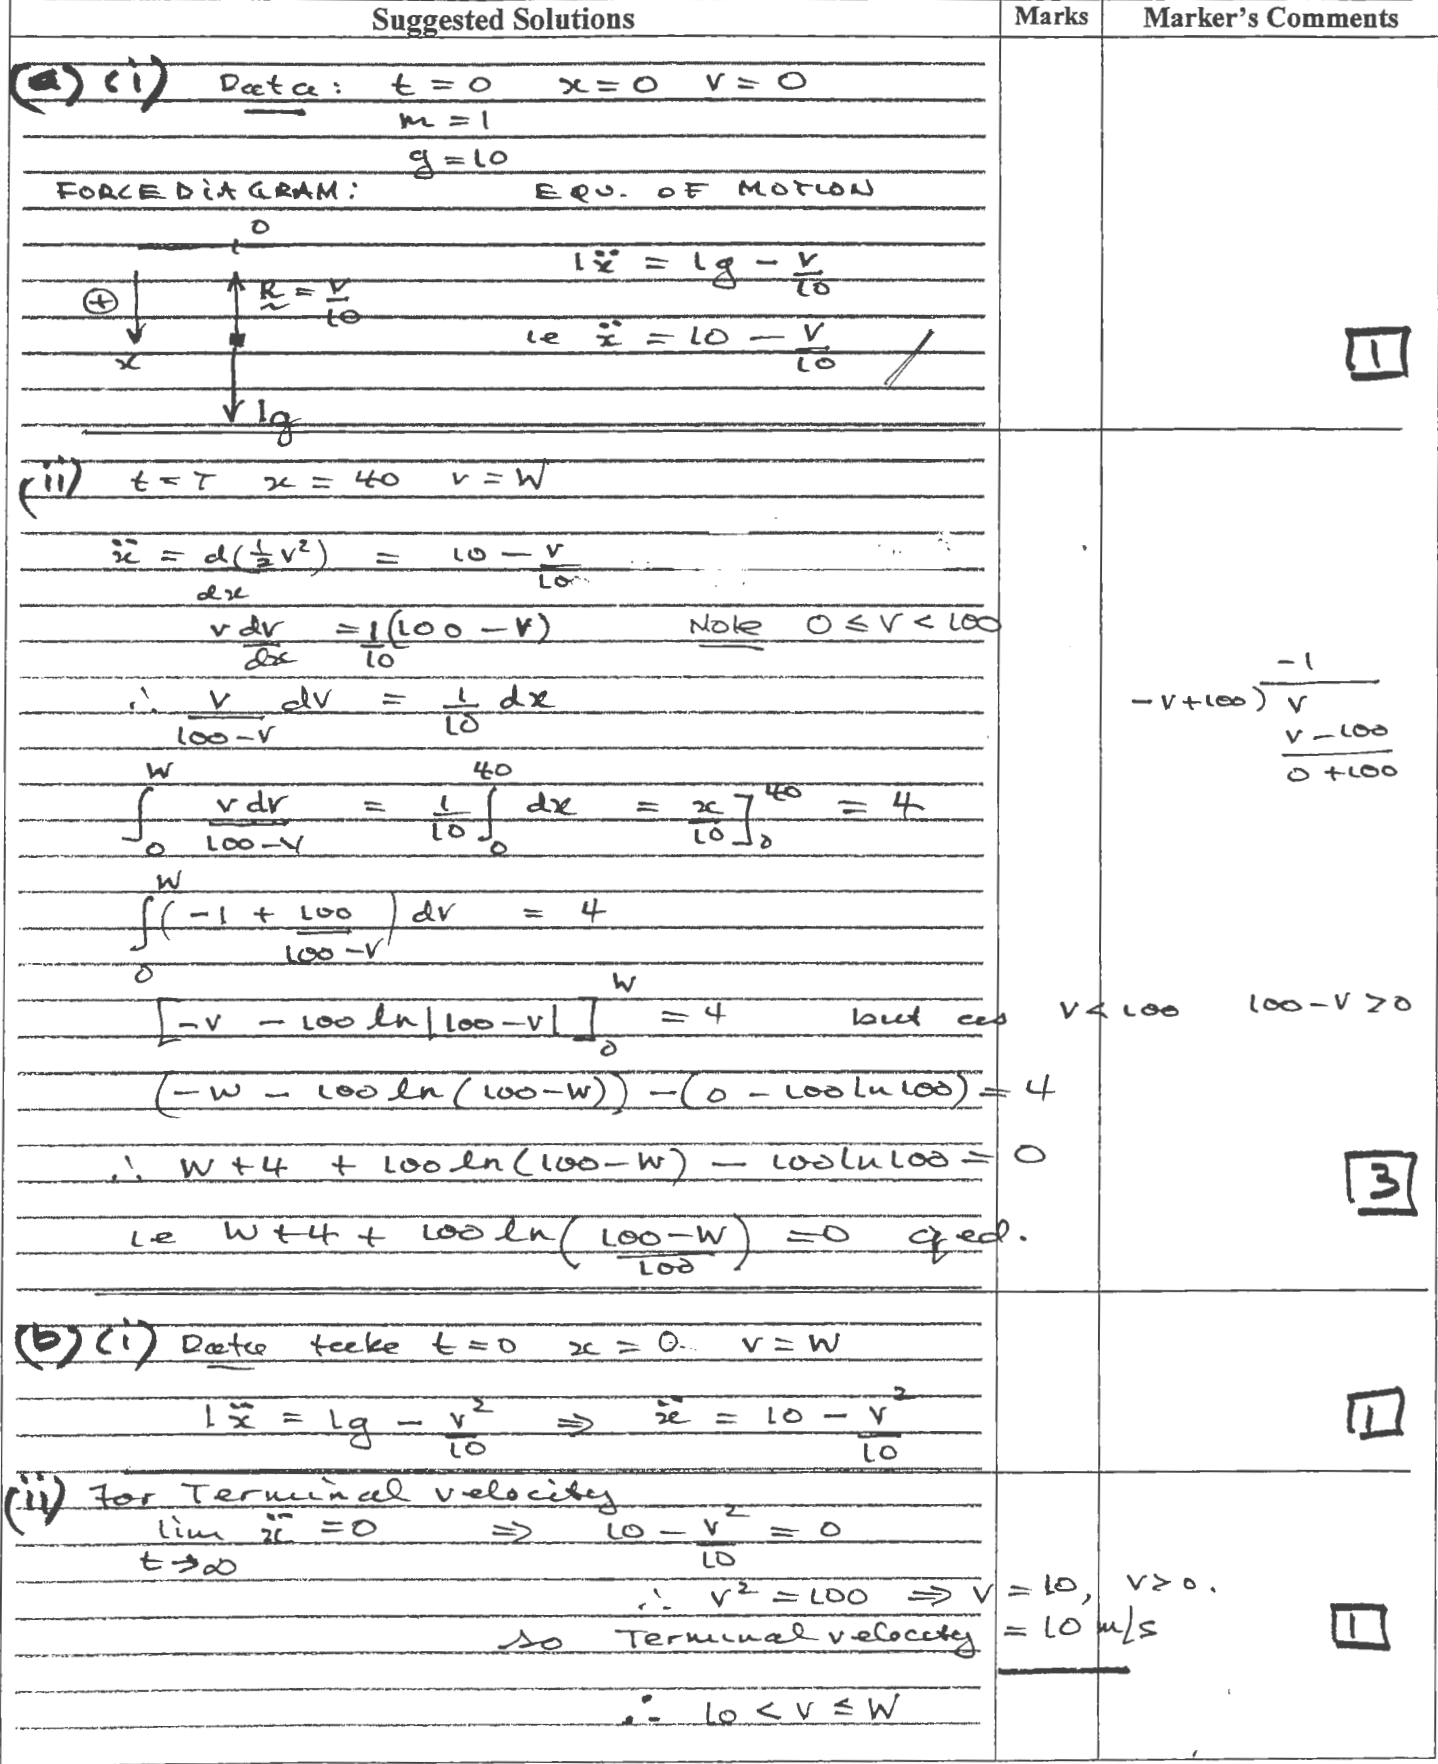 Suggested Solutions Marks Marker's Comments
(a) (i) Data: t = 0 x = 0 v = 0
m = 1
g = 10
FORCE DIAGRAM: EQU. OF MOTION
0
1ẍ = 1g - v/10
⊕ R = v/10
ie ẍ = 10 - v/10
x
1
1g
(ii) t = T x = 40 v = W
ẍ = d(½v²)/dx = 10 - v/10
v dv/dx = 1/10 (100 - v) Note 0 ≤ v < 100
∴ v/(100-v) dv = 1/10 dx
-1
-v+100) v
v - 100
0 + 100
∫₀^W v dv/(100-v) = 1/10 ∫₀^40 dx = x/10]₀^40 = 4
∫₀^W (-1 + 100/(100-v)) dv = 4
[-v - 100 ln|100-v|]₀^W = 4 but as v < 100 100-v > 0
(-W - 100 ln(100-W)) - (0 - 100 ln 100) = 4
∴ W + 4 + 100 ln(100-W) - 100 ln 100 = 0
3
ie W + 4 + 100 ln((100-W)/100) = 0 qed.
(b) (i) Data take t = 0 x = 0. v = W
1ẍ = 1g - v²/10 ⇒ ẍ = 10 - v²/10
1
(ii) For Terminal velocity
lim t→∞ ẍ = 0 ⇒ 10 - v²/10 = 0
∴ v² = 100 ⇒ v = 10, v > 0.
so Terminal velocity = 10 m/s
1
∴ 10 < v ≤ W